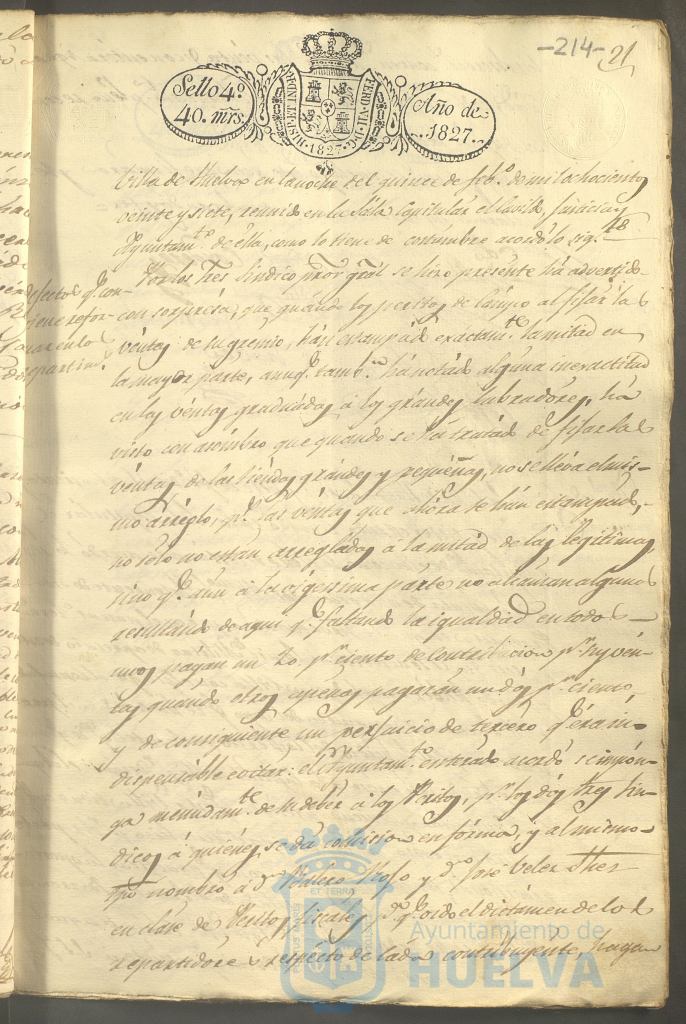 -214- 21
Sello 4º.
40. mrs.
HISP. ET IND. R.
FERD. VII. D. G.
1827
Año de
1827.
Villa de Huelva en la noche del quince de feb.º de mil ochocientos
veinte y siete, reunido en la Sala Capitular el Cavildo, Justicia y
Ayuntam.to de ella, como lo tiene de costumbre acordó lo sig.te
Por los Tres Sindico Pror gral se hizo presente ha advertido
con sorpresa, que quando los peritos de campo al fijar las
ventas de su gremio, han estampado exactam.te la mitad en
la mayor parte, aunq.e tamb.n ha notado alguna inexactitud
en las ventas graduadas a los grandes labradores, ha
visto con asombro que quando se ha tratado de fijar las
ventas de las tiendas grandes y pequeñas, no se lleva el mis-
mo arreglo, p.s las ventas que ahora se han estampado,
no solo no estan arregladas a la mitad de las legitimas,
sino q.e aun a la vigessima parte no alcanzan algunas
resultando de aqui q.e faltando la igualdad en todos
unos pagan un 20 p.r ciento de Contribucion p.r sus ven-
tas quando otros apenas pagaran un dos p.r ciento,
y de consiguiente un perjuicio de tercero q.e era in-
dispensable evitar: el Ayuntam.to enterado acordó se impon-
ga menudam.te de su deber a los Peritos, p.r los dos Tres Sin-
dicos a quienes se da comision en forma, y al mismo
tpo nombró a D.n Valero y D.n José Velez
en clase de Peritos fiscales p.a q.e oido el dictamen de los
repartidores respecto de cada contribuyente, hagan
defectos q.e con-
viene refor-
marse en los
repartim.tos
Ayuntamiento de
HUELVA